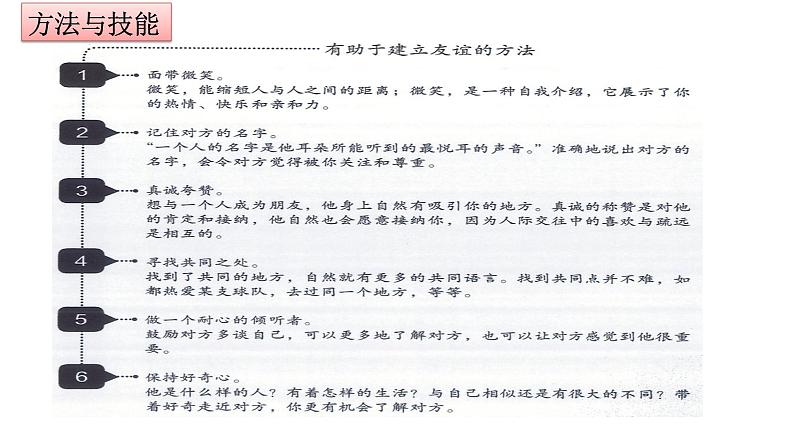 方法与技能
有助于建立友谊的方法
1 面带微笑。
微笑，能缩短人与人之间的距离；微笑，是一种自我介绍，它展示了你
的热情、快乐和亲和力。
2 记住对方的名字。
“一个人的名字是他耳朵所能听到的最悦耳的声音。”准确地说出对方的
名字，会令对方觉得被你关注和尊重。
3 真诚夸赞。
想与一个人成为朋友，他身上自然有吸引你的地方。真诚的称赞是对他
的肯定和接纳，他自然也会愿意接纳你，因为人际交往中的喜欢与疏远
是相互的。
4 寻找共同之处。
找到了共同的地方，自然就有更多的共同语言。找到共同点并不难，如
都热爱某支球队，去过同一个地方，等等。
5 做一个耐心的倾听者。
鼓励对方多谈自己，可以更多地了解对方，也可以让对方感觉到他很重
要。
6 保持好奇心。
他是什么样的人？有着怎样的生活？与自己相似还是有很大的不同？带
着好奇走近对方，你更有机会了解对方。